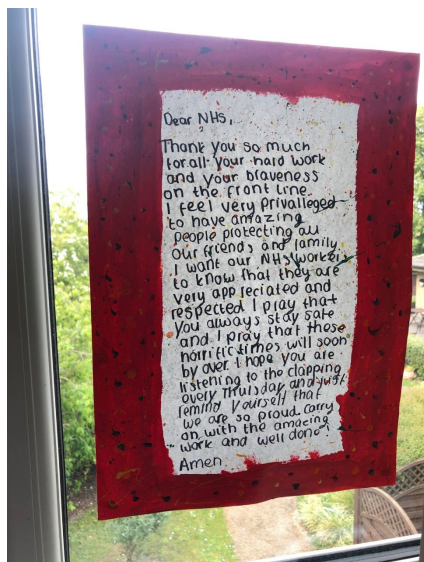 Dear NHS,
Thank you so much
for all your hard work
and your braveness
on the front line.
I feel very privalleged
to have amazing
people protecting all
our friends and family.
I want our NHS worker
to know that they are
very appreciated and
respected. I pray that
you always stay safe
and I pray that these
horrific times will soon
by over I hope you are
listening to the clapping
every Thursday and just
remind yourself that
we are so proud. Carry
on with the amacing
work and well done!
Amen